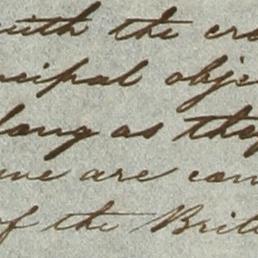 with the cro
ncipal obje
long as they
we are con
of the Brit